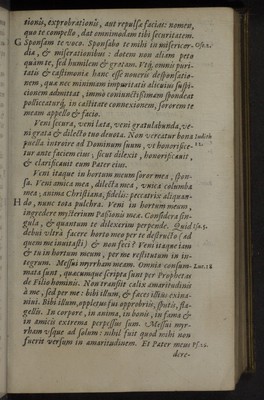 tionis, exprobrationis, aut repulsa faciat: nomen,
quo te compello, dat omnimodam tibi securitatem.
G Sponsam te voco. Sponsabo te mihi in misericor- Ose.2.
dia, & miserationibus: dotem non aliam peto
quàm te, sed humilem & gratam. Vtq; omnis puri-
tatis & castimonia hanc esse noueris desponsatio-
nem, qua nec minimam impuritatis alicuius suspi-
cionem admittat, immò coniunctissimam spondeat
pollicaturq́; in castitate connexionem, sororem te
meam appello & facio.
Veni secura, veni læta, veni gratulabunda, ve-
ni grata & dilecto tuo deuota. Non vereatur bona Iudith
puella introire ad Dominum suum, vt honorifice- 12.
tur ante faciem eius; sicut dilexit, honorificauit,
& clarificauit eum Pater eius.
Veni itaque in hortum meum soror mea, spon-
sa. Veni amica mea, dilecta mea, vnica columba
mea; anima Christiana, fidelis: peccatrix aliquan-
H do, nunc tota pulchra. Veni in hortum meum,
ingredere mysterium Passionis mea. Considera sin-
gula, & quantum te dilexerim perpende. Quid Isa.5.
debui vltrà facere horto meo per te destructo (ad
quem me inuitasti) & non feci? Veni itaque iam
& tu in hortum meum, per me restitutum in in-
tegrum. Messui myrrham meam. Omnia consum- Luc.18
mata sunt, quacumque scripta sunt per Prophetas
de Filio hominis. Non transijt calix amaritudinis
à me, sed per me: bibi illum, & faces illius exina-
niui. Bibi illum, oppletus sui opprobrijs, sputis, fla-
gellis. In corpore, in anima, in bonis, in fama &
in amicis extrema perpessus sum. Messui myr-
rham vsque ad solum: nihil fuit quod mihi non
fuerit versum in amaritudinem. Et Pater meus Ps.21.
dere-